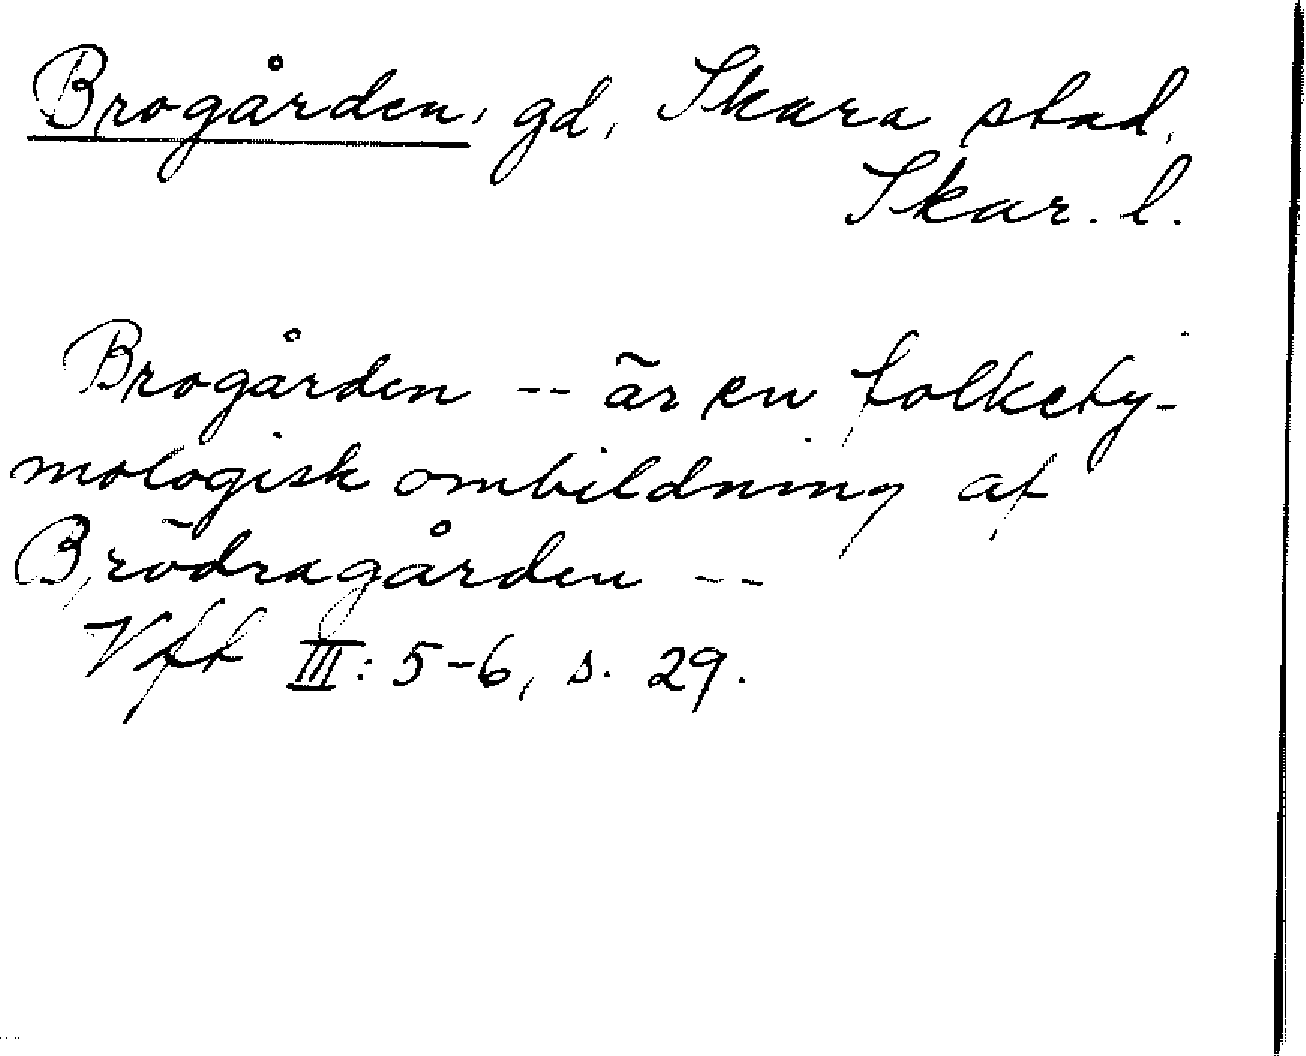 Brogården, gd, Skara stad,
Skar. l.
Brogården -- är en folkety-
mologisk ombildning af
Brödragården --
Vft III: 5-6, s. 29.